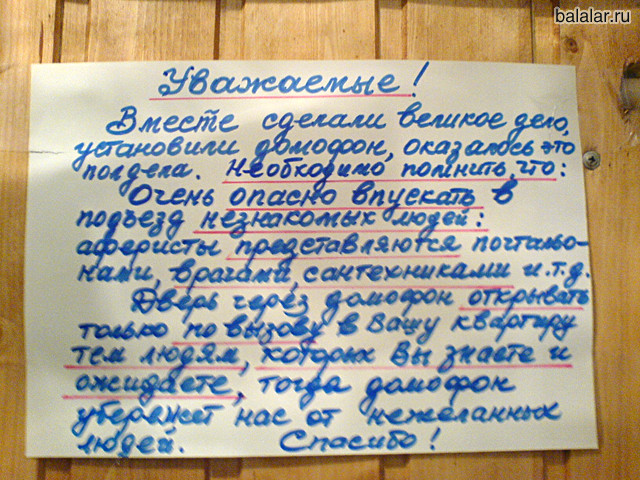 balalar.ru
Уважаемые!
Вместе сделали великое дело,
установили домофон, оказалось это
полдела. Необходимо помнить, что:
Очень опасно впускать в
подъезд незнакомых людей:
аферисты представляются почтальо-
нами, врачами, сантехниками и.т.д.
Дверь через домофон открывать
только по вызову в Вашу квартиру
тем людям, которых Вы знаете и
ожидаете, тогда домофон
убережет нас от нежеланных
людей. Спасибо!